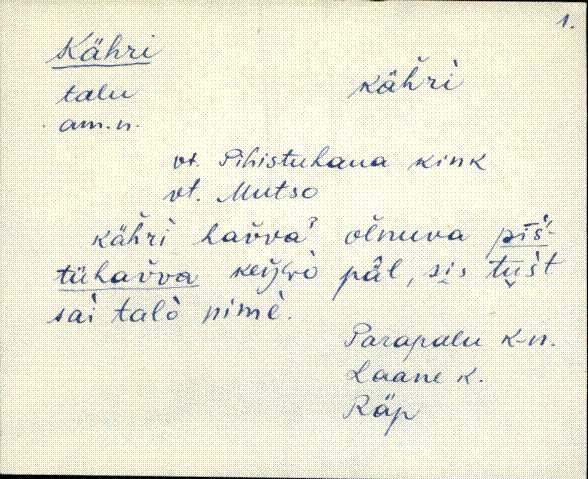 1.
Kähri
talu kähŕì
am.n.
vt. Pihistuhaua kink
vt. Mutso
kähŕì havva' olnuva piš-
tühavva päl, sis tušt
sai talò nimè.
Parapalu k-n.
Laane k.
Räp